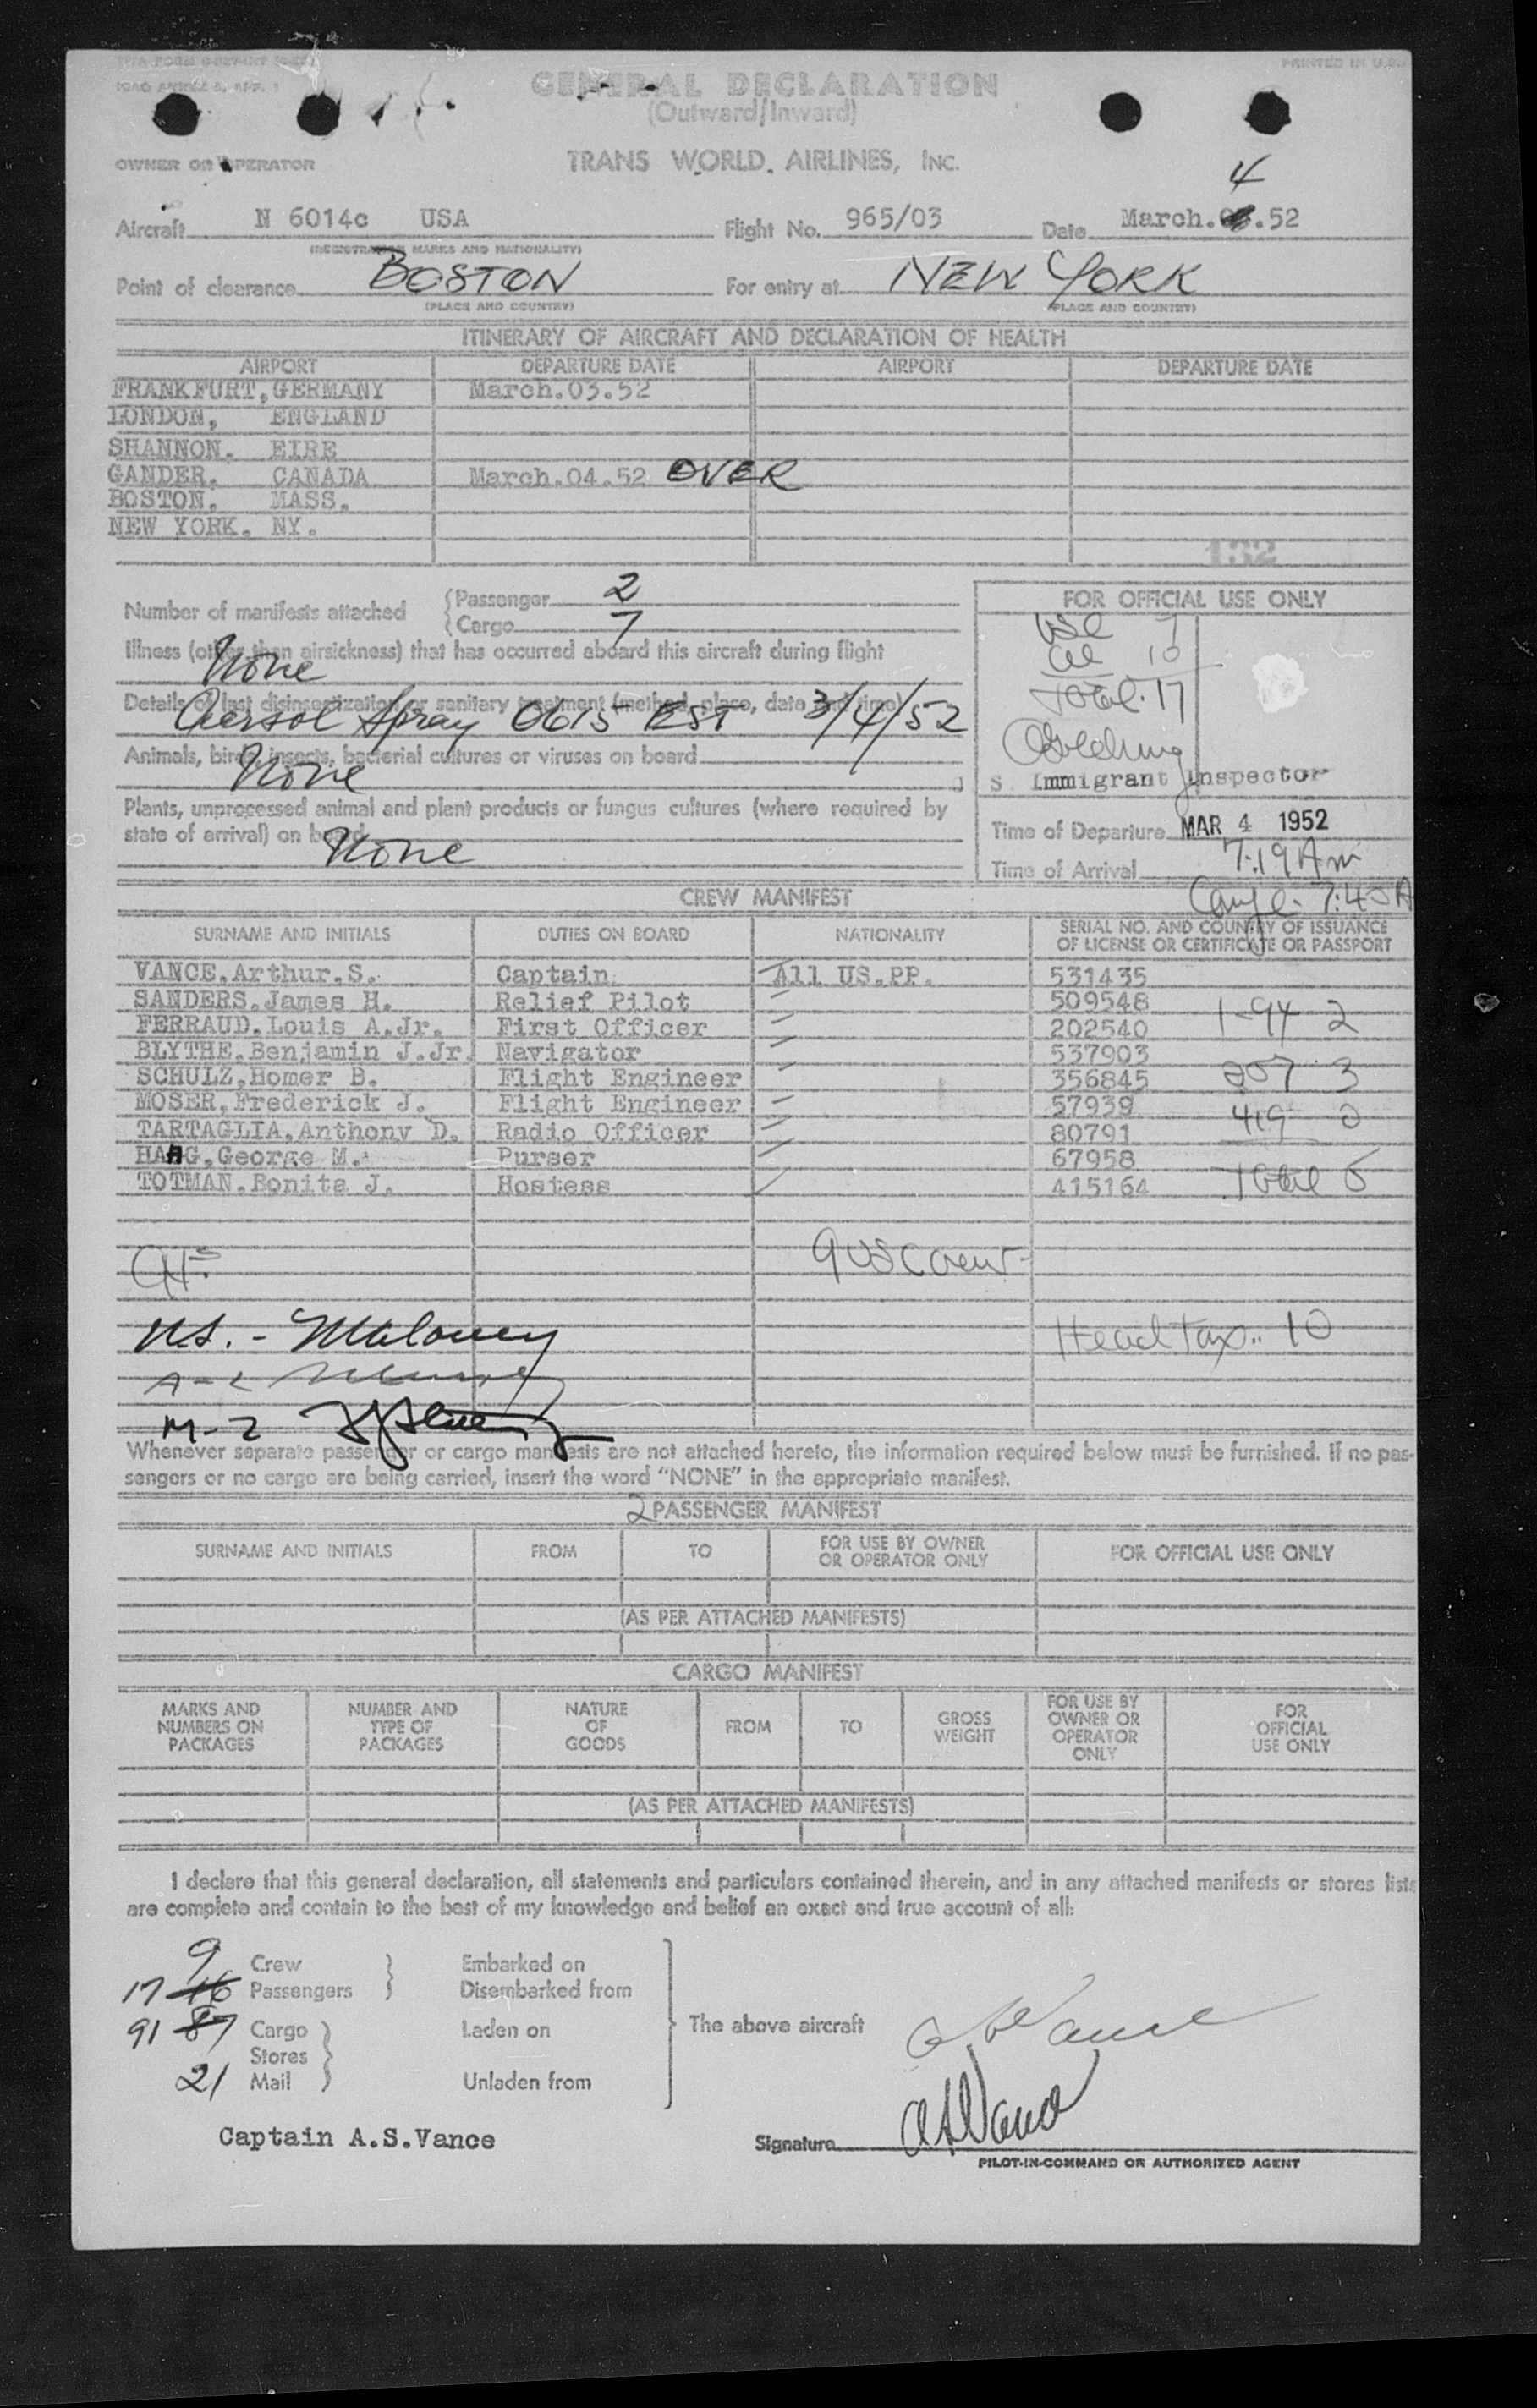 GENERAL DECLARATION
PRINTED IN U.S.
(Outward/Inward)
OWNER OR OPERATOR TRANS WORLD AIRLINES, INC.
4
Aircraft N 6014c USA Flight No. 965/03 Date March. .52
(REGISTRATION MARKS AND NATIONALITY)
Point of clearance BOSTON For entry at NEW YORK
(PLACE AND COUNTRY) (PLACE AND COUNTRY)
ITINERARY OF AIRCRAFT AND DECLARATION OF HEALTH
AIRPORT DEPARTURE DATE AIRPORT DEPARTURE DATE
FRANKFURT, GERMANY March.03.52
LONDON, ENGLAND
SHANNON. EIRE
GANDER, CANADA March.04.52 OVER
BOSTON, MASS.
NEW YORK. NY.
132
Number of manifests attached
Passenger 2
Cargo 7
Illness (other than airsickness) that has occurred aboard this aircraft during flight
None
Details of last disinsectization or sanitary treatment (method, place, date and time)
Aersol Spray 0615 EST 3/4/52
Animals, birds, insects, bacterial cultures or viruses on board
None
Plants, unprocessed animal and plant products or fungus cultures (where required by
state of arrival) on board
None
FOR OFFICIAL USE ONLY
USC 7
al 10
Total. 17
S. Immigrant Inspector
Time of Departure MAR 4 1952
Time of Arrival 7:19 Am
7:45A
CREW MANIFEST
SURNAME AND INITIALS DUTIES ON BOARD NATIONALITY SERIAL NO. AND COUNTRY OF ISSUANCE
OF LICENSE OR CERTIFICATE OR PASSPORT
VANCE.Arthur.S. Captain All US.PP. 531435
SANDERS.James H. Relief Pilot 509548
FERRAUD.Louis A.Jr. First Officer 202540 1-94 2
BLYTHE.Benjamin J.Jr. Navigator 537903
SCHULZ,Homer B. Flight Engineer 356845 257 3
MOSER,Frederick J. Flight Engineer 57939 419 0
TARTAGLIA.Anthony D. Radio Officer 80791
HAAG,George M. Purser 67958
TOTMAN.Bonita J. Hostess 415164 Total 5
9 USC Crew
U.S. - Maloney
Head Tax.. 10
M-2
Whenever separate passenger or cargo manifests are not attached hereto, the information required below must be furnished. If no pas-
sengers or no cargo are being carried, insert the word "NONE" in the appropriate manifest.
2 PASSENGER MANIFEST
SURNAME AND INITIALS FROM TO FOR USE BY OWNER OR OPERATOR ONLY FOR OFFICIAL USE ONLY
(AS PER ATTACHED MANIFESTS)
CARGO MANIFEST
MARKS AND NUMBERS ON PACKAGES NUMBER AND TYPE OF PACKAGES NATURE OF GOODS FROM TO GROSS WEIGHT FOR USE BY OWNER OR OPERATOR ONLY FOR OFFICIAL USE ONLY
(AS PER ATTACHED MANIFESTS)
I declare that this general declaration, all statements and particulars contained therein, and in any attached manifests or stores lists
are complete and contain to the best of my knowledge and belief an exact and true account of all:
9 Crew Embarked on
17 16 Passengers Disembarked from
91 87 Cargo Laden on The above aircraft
Stores
21 Mail Unladen from
Captain A.S.Vance
Signature ASVance
PILOT-IN-COMMAND OR AUTHORIZED AGENT